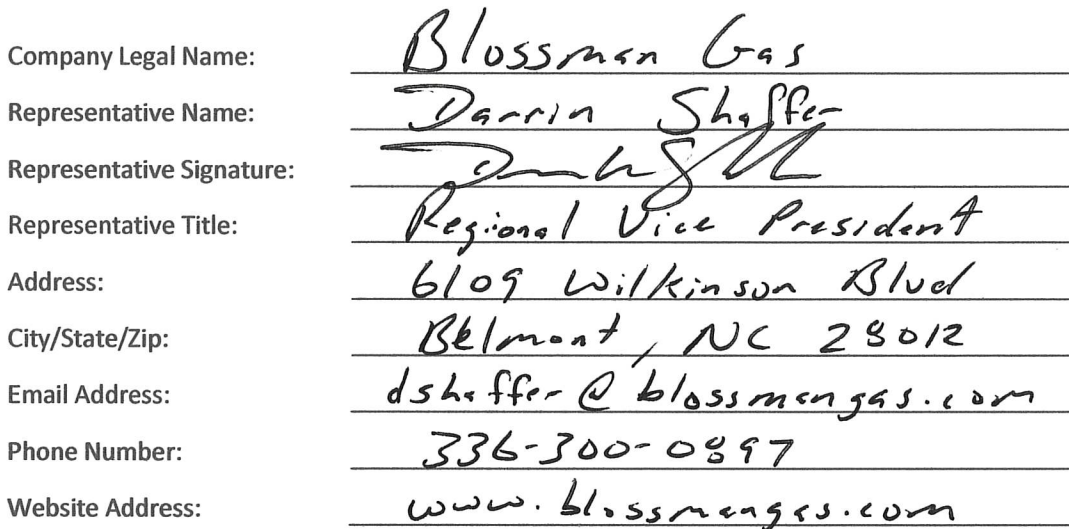 Company Legal Name: Blossman Gas
Representative Name: Darrin Shaffer
Representative Signature:
Representative Title: Regional Vice President
Address: 6109 Wilkinson Blvd
City/State/Zip: Belmont, NC 28012
Email Address: dshaffer@blossmangas.com
Phone Number: 336-300-0897
Website Address: www.blossmangas.com